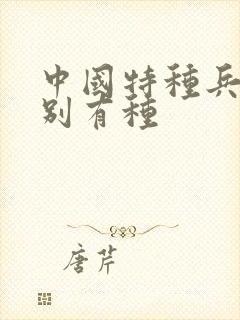 中國特種兵
別有種
唐芹